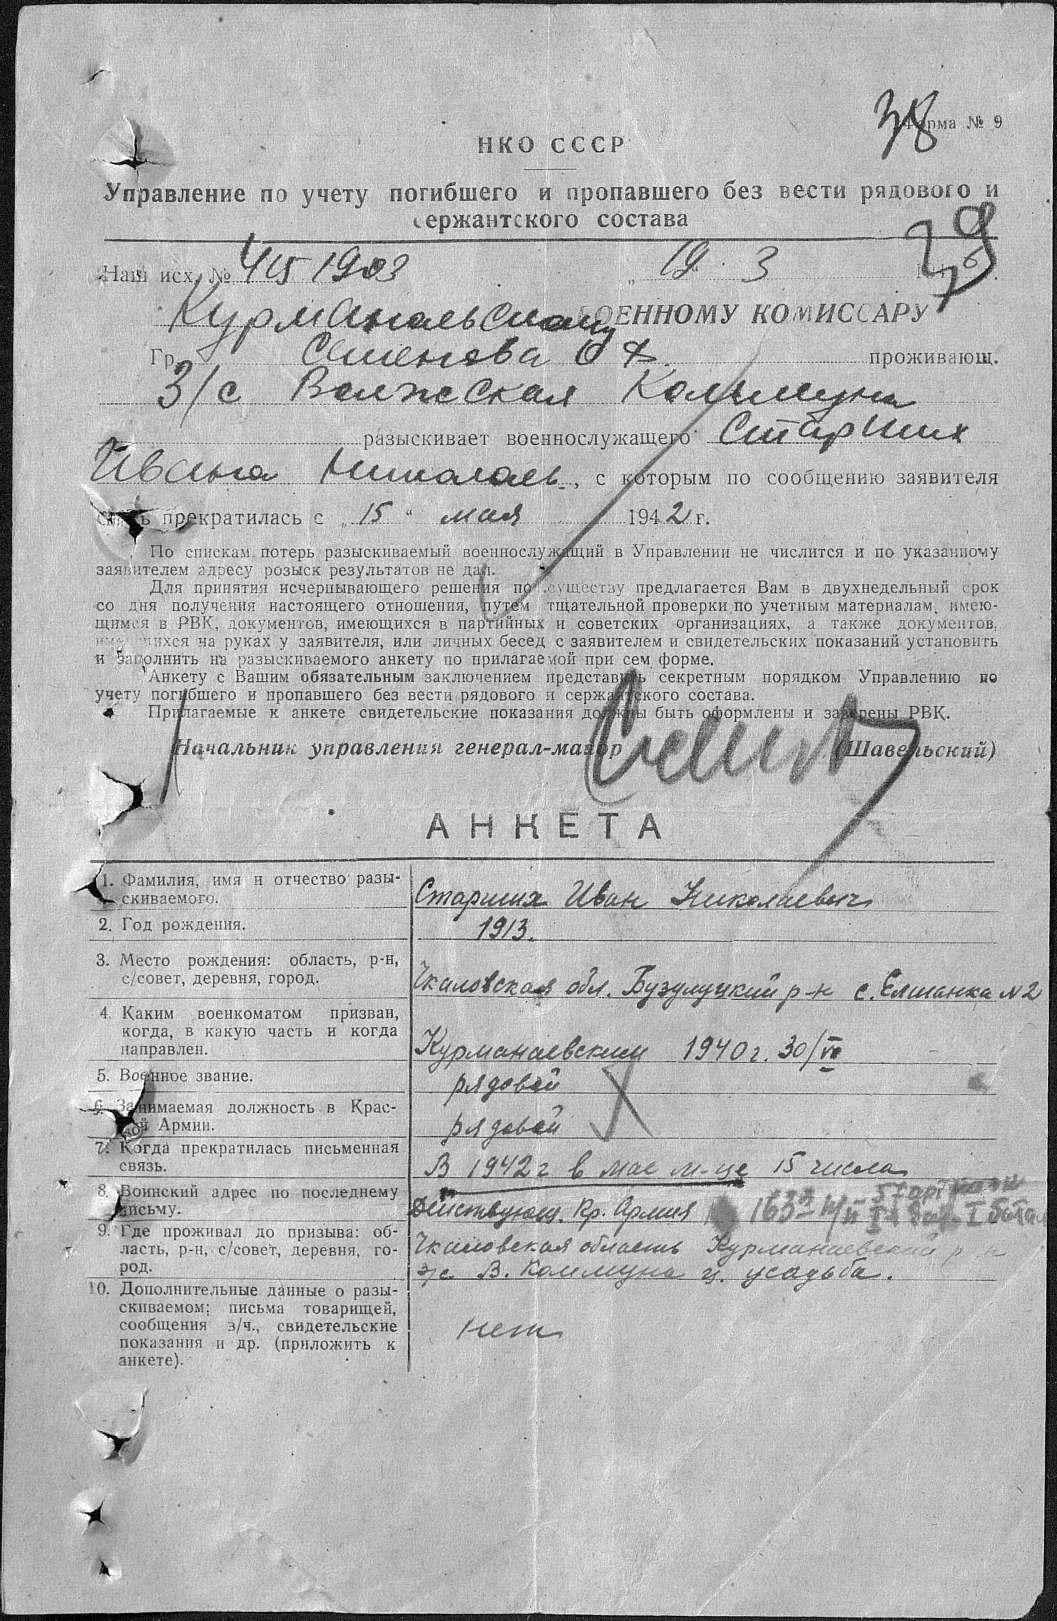 38
Форма № 9
НКО СССР
Управление по учету погибшего и пропавшего без вести рядового и
сержантского состава
39
Наш исх. № 4/151903 „19. 3
Курманаевскому ВОЕННОМУ КОМИССАРУ
Гр. Семенова О Ф. проживающ.
З/с Волжская Коммуна
разыскивает военнослужащего Старших
Ивана Николаев., с которым по сообщению заявителя
связь прекратилась с „15“ мая 1942 г.
По спискам потерь разыскиваемый военнослужащий в Управлении не числится и по указанному
заявителем адресу розыск результатов не дал.
Для принятия исчерпывающего решения по существу предлагается Вам в двухнедельный срок
со дня получения настоящего отношения, путем тщательной проверки по учетным материалам, имею-
щимся в РВК, документов, имеющихся в партийных и советских организациях, а также документов,
имеющихся на руках у заявителя, или личных бесед с заявителем и свидетельских показаний установить
и заполнить на разыскиваемого анкету по прилагаемой при сем форме.
Анкету с Вашим обязательным заключением представить секретным порядком Управлению по
учету погибшего и пропавшего без вести рядового и сержантского состава.
Прилагаемые к анкете свидетельские показания должны быть оформлены и заверены РВК.
Начальник управления генерал-майор (Шавельский)
АНКЕТА
1. Фамилия, имя и отчество разы-
скиваемого.
Старших Иван Николаевич
2. Год рождения.
1913.
3. Место рождения: область, р-н,
с/совет, деревня, город.
Чкаловская обл. Бузулуцкий р-н с. Елшанка N2
4. Каким военкоматом призван,
когда, в какую часть и когда
направлен.
Курманаевским 1940 г. 30/VI
5. Военное звание.
рядовой
6. Занимаемая должность в Крас-
ной Армии.
рядовой
7. Когда прекратилась письменная
связь.
В 1942 г в мае м-це 15 числа
8. Воинский адрес по последнему
письму.
Действующ. Кр. Армия 163
9. Где проживал до призыва: об-
ласть, р-н, с/совет, деревня, го-
род.
Чкаловская область Курманаевский р-н
з/с В. Коммуна ц. усадьба.
10. Дополнительные данные о разы-
скиваемом: письма товарищей,
сообщения в/ч., свидетельские
показания и др. (приложить к
анкете).
нет